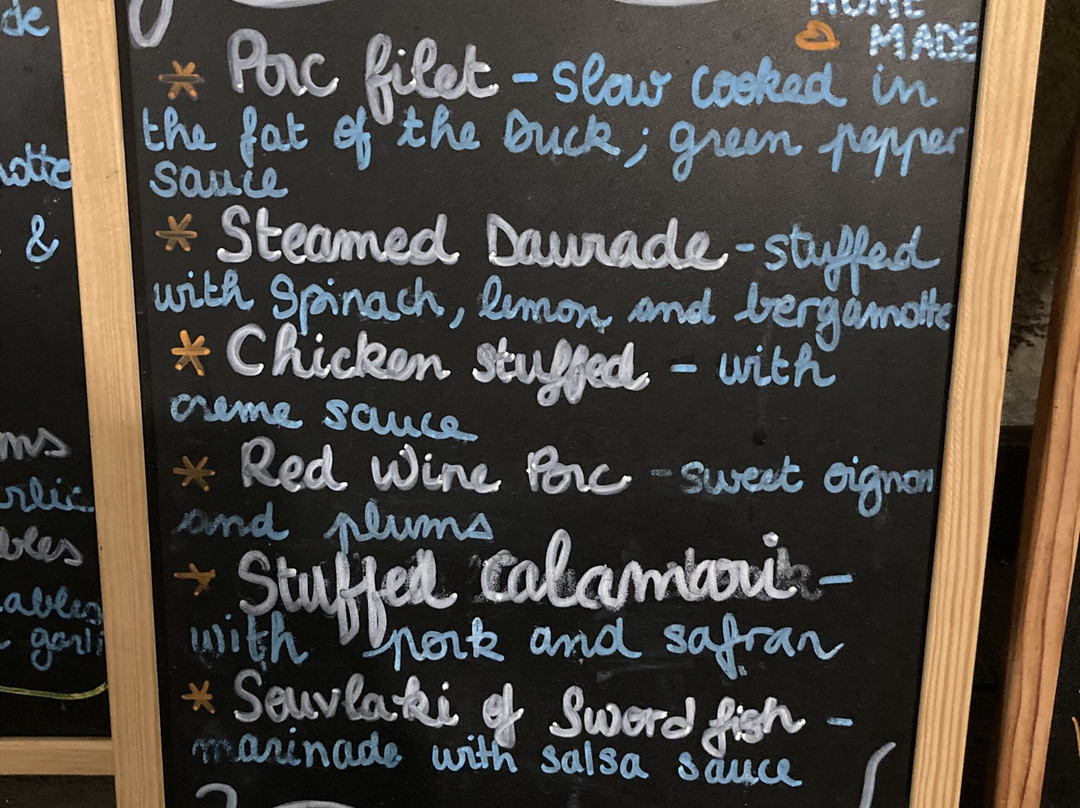 HOME
MADE
* Porc filet - slow cooked in
the fat of the Duck; green pepper
sauce
* Steamed Daurade - stuffed
with Spinach, lemon and bergamotte
* Chicken stuffed - with
creme sauce
* Red Wine Porc - sweet oignon
and plums
* Stuffed Calamari -
with pork and safran
* Souvlaki of Swordfish -
marinade with salsa sauce
de
&